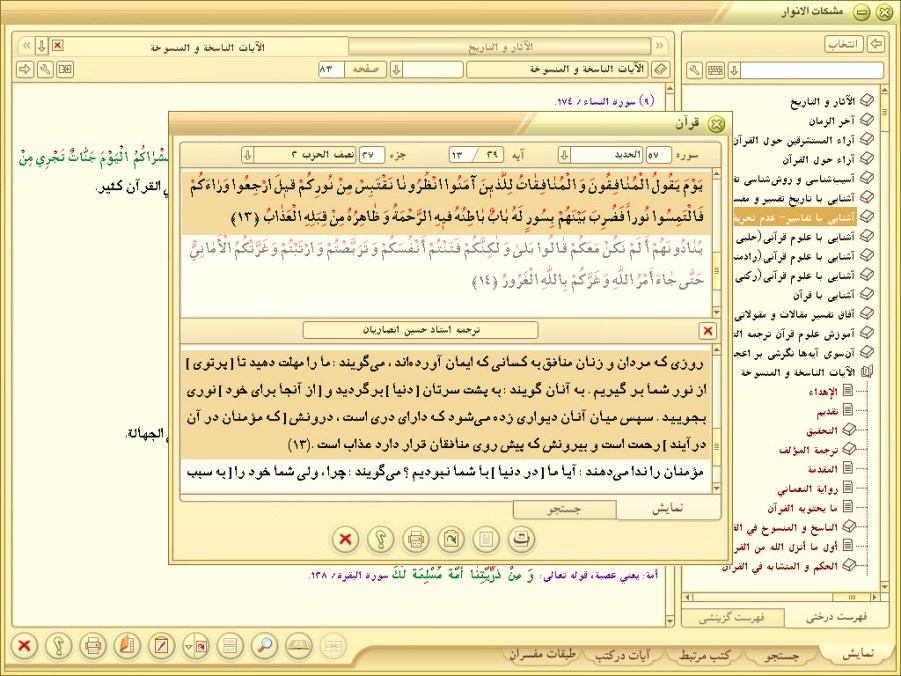 مشکات الانوار
انتخاب
الآثار و التاریخ
الآیات الناسخة و المنسوخة
الآیات الناسخة و المنسوخة
صفحه
۸۳
(۹) سورة النساء / ۱۷۴.
بُشْرَاكُمُ الْیَوْمَ جَنَّاتٌ تَجْرِي مِنْ
القرآن کثیر.
الجهالة.
أمة: یعني عصبة، قوله تعالی: وَ مِنْ ذُرِّیَّتِنَا أُمَّةً مُسْلِمَةً لَكَ سورة البقرة / ۱۳۸.
قرآن
سوره ۵۷ الحدید آیه ۲۹ / ۱۳ جزء ۲۷ نصف الحزب ۳
یَوْمَ یَقُولُ الْمُنَافِقُونَ وَ الْمُنَافِقَاتُ لِلَّذِینَ آمَنُوا انْظُرُونَا نَقْتَبِسْ مِنْ نُورِكُمْ قِیلَ ارْجِعُوا وَرَاءَكُمْ
فَالْتَمِسُوا نُوراً فَضُرِبَ بَیْنَهُمْ بِسُورٍ لَهُ بَابٌ بَاطِنُهُ فِیهِ الرَّحْمَةُ وَ ظَاهِرُهُ مِنْ قِبَلِهِ الْعَذَابُ (۱۳)
یُنَادُونَهُمْ أَ لَمْ نَكُنْ مَعَكُمْ قَالُوا بَلَى وَ لَكِنَّكُمْ فَتَنْتُمْ أَنْفُسَكُمْ وَ تَرَبَّصْتُمْ وَ ارْتَبْتُمْ وَ غَرَّتْكُمُ الْأَمَانِيُّ
حَتَّى جَاءَ أَمْرُ اللَّهِ وَ غَرَّكُمْ بِاللَّهِ الْغَرُورُ (۱۴)
ترجمه استاد حسین انصاریان
روزی که مردان و زنان منافق به کسانی که ایمان آورده‌اند، می‌گویند: ما را مهلت دهید تا [ پرتوی ]
از نور شما بر گیریم. به آنان گویند: به پشت سرتان [ دنیا ] برگردید و [ از آنجا برای خود ] نوری
بجویید. سپس میان آنان دیواری زده می‌شود که دارای دری است، درونش [ که مؤمنان در آن
در آیند ] رحمت است و بیرونش که پیش روی منافقان قرار دارد عذاب است. (۱۳)
مؤمنان را ندا می‌دهند: آیا ما [ در دنیا ] با شما نبودیم؟ می‌گویند: چرا، ولی شما خود را [ به سبب
نمایش
جستجو
الآثار و التاریخ
آخر الزمان
آراء المستشرقین حول القرآن
آراء حول القرآن
آسیب‌شناسی و روش‌شناسی تف
آشنایی با تاریخ تفسیر و مفس
آشنایی با تفاسیر- عدم تحریف
آشنایی با علوم قرآنی (حلبی
آشنایی با علوم قرآنی (رادمنش
آشنایی با علوم قرآنی (رکنی
آشنایی با قرآن
آفاق تفسیر مقالات و مقولاتی
آموزش علوم قرآن ترجمه الت
آن‌سوی آیه‌ها نگرشی بر اعجا
الآیات الناسخة و المنسوخة
الإهداء
تقدیم
التحقیق
ترجمة المؤلف
المقدمة
روایة النعماني
ما یحتویه القرآن
الناسخ و المنسوخ في الق
أول ما أنزل الله من القرآ
الحکم و المتشابه في القرآن
فهرست درختی
فهرست گزینشی
نمایش
جستجو
کتب مرتبط
آیات در کتب
طبقات مفسران